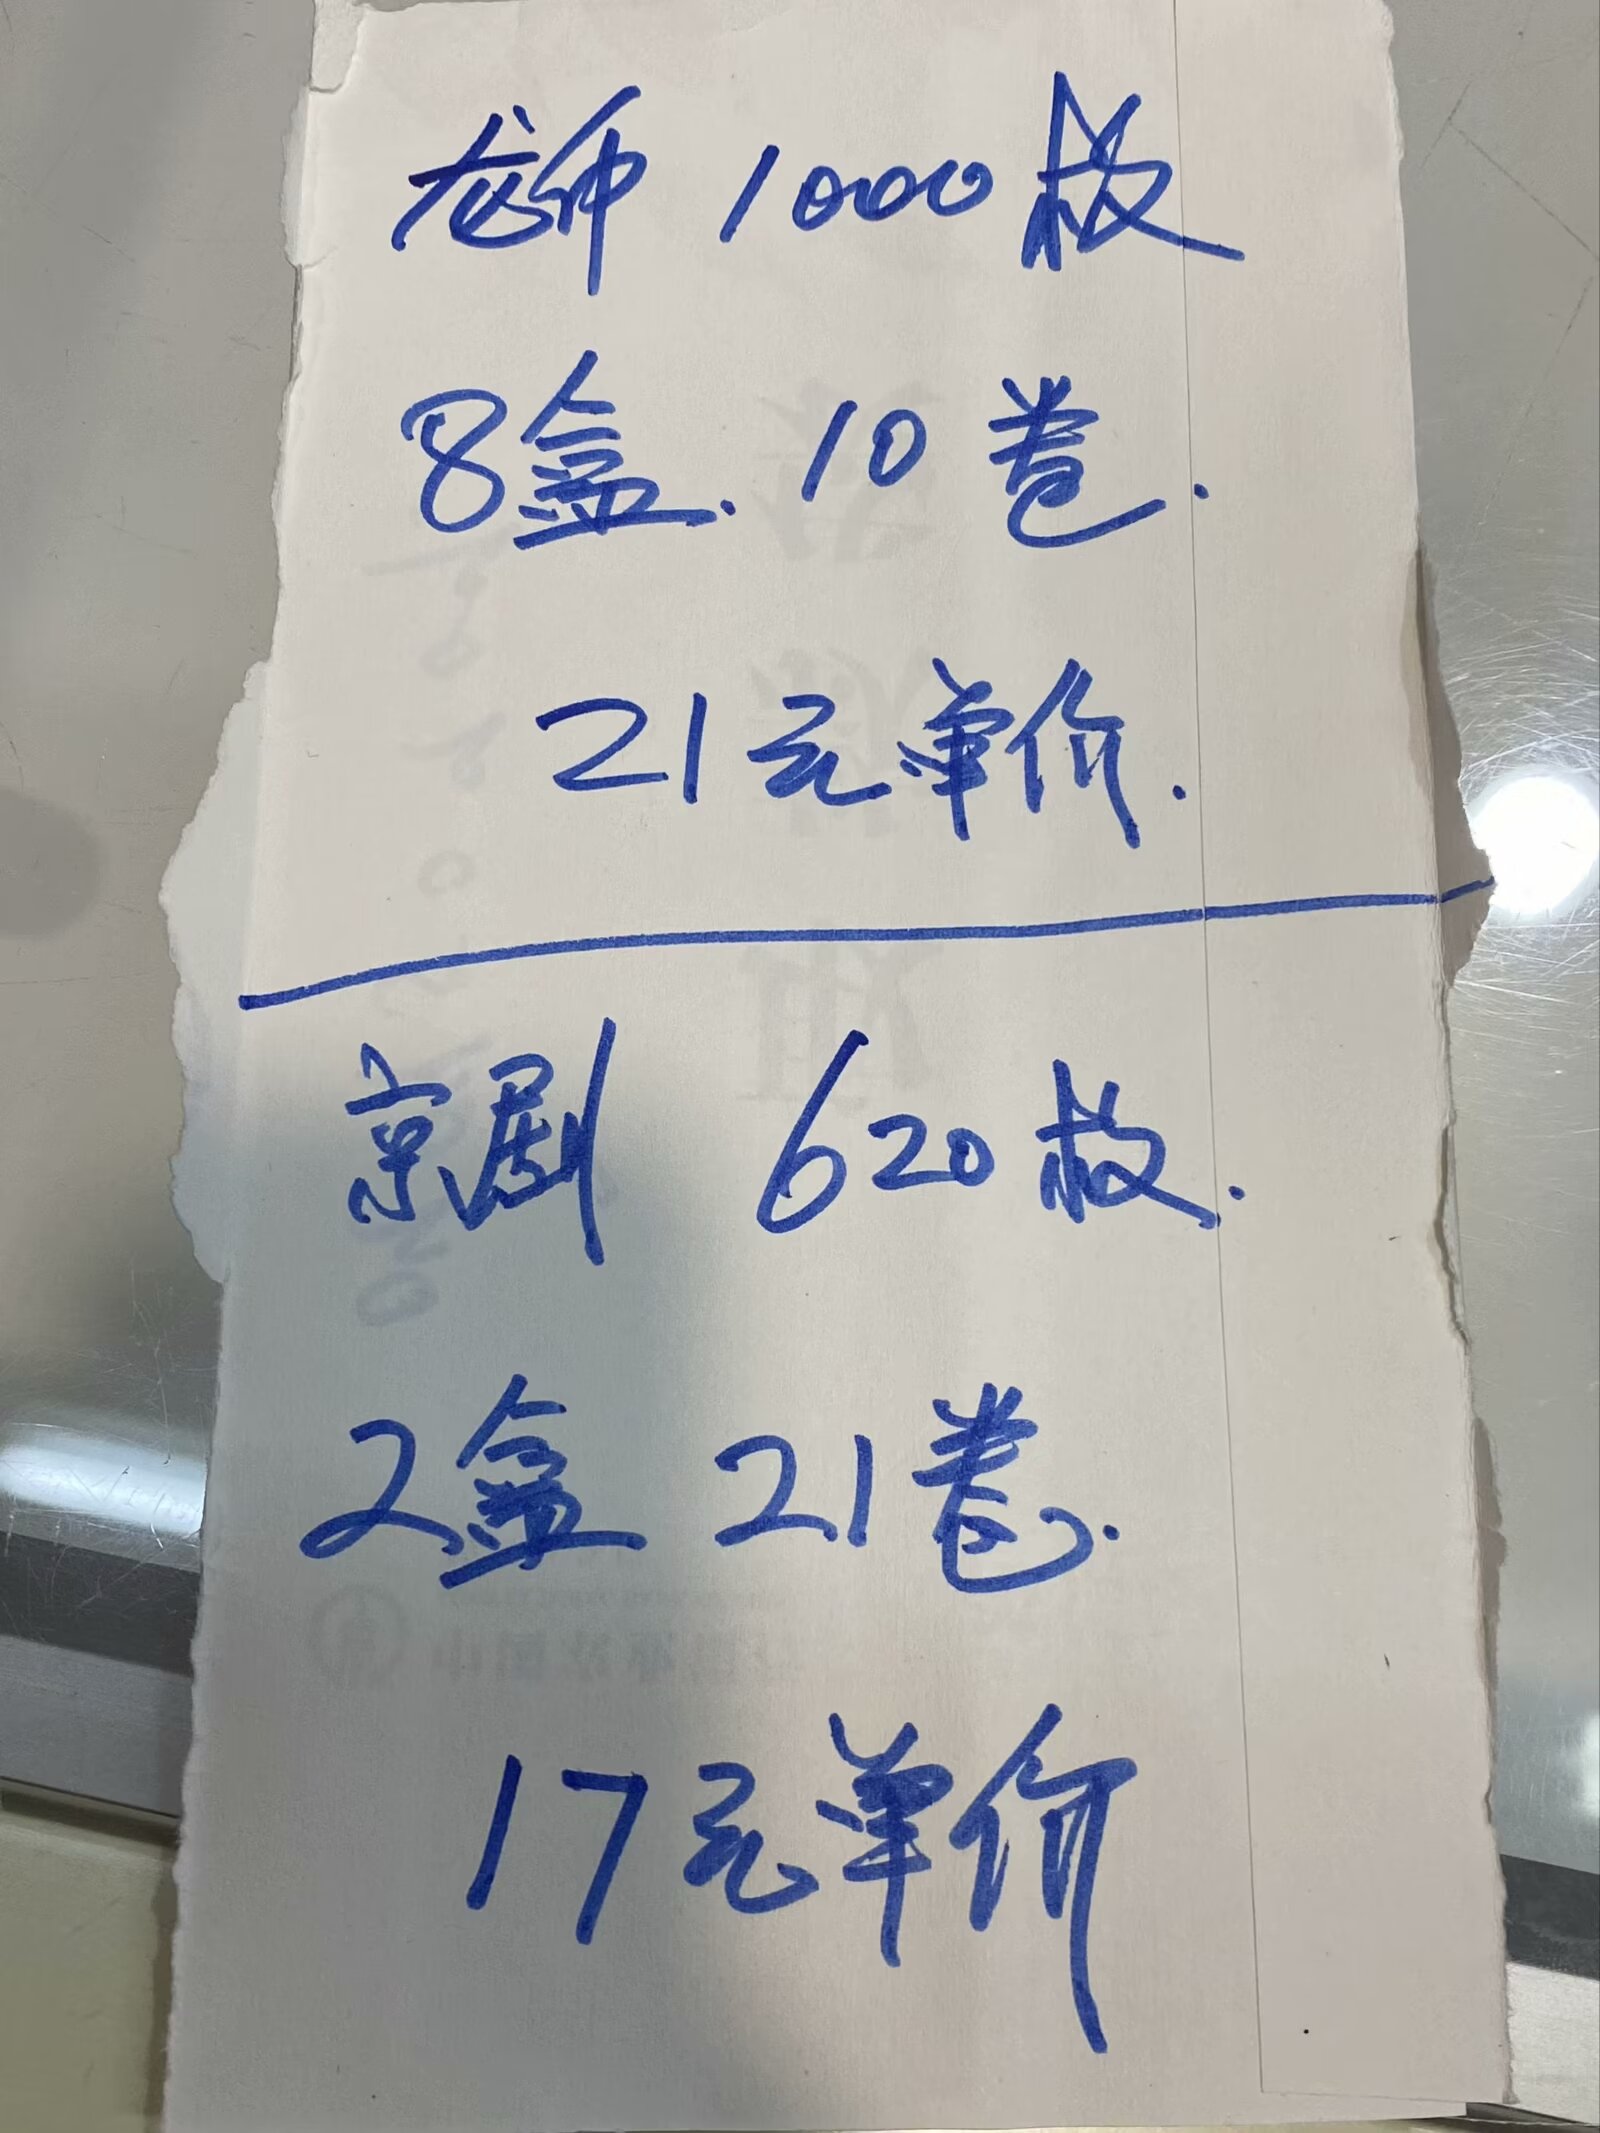 龙币 1000枚
8盒. 10卷.
21元单价.
京剧 620枚.
2盒 21卷.
17元单价